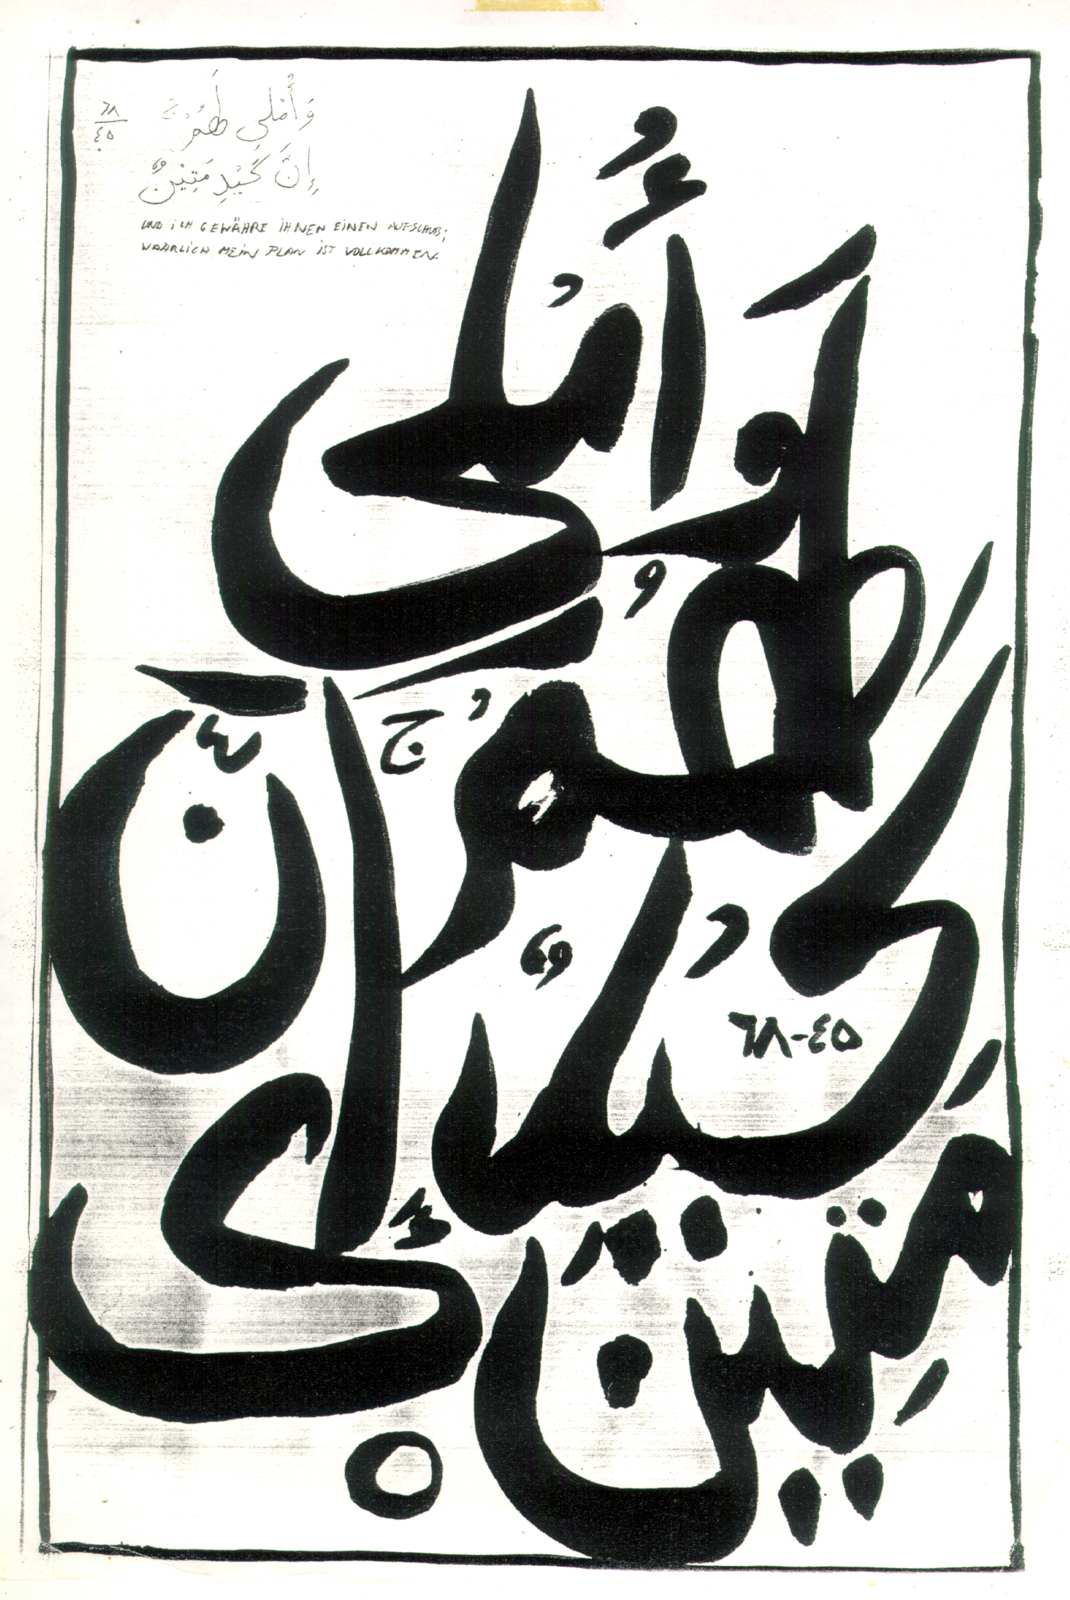 ٦٨
٤٥
وَأُملي لَهُمْ ج
إِنَّ كَيْدِ مَتِينٌ
UND ICH GEWÄHRE IHNEN EINEN AUFSCHUB;
WAHRLICH MEIN PLAN IST VOLLKOMMEN.
وَأُمْلِي
لَهُمْ ج إِنَّ
كَيْدِي
٦٨-٤٥
مَتِينٌ